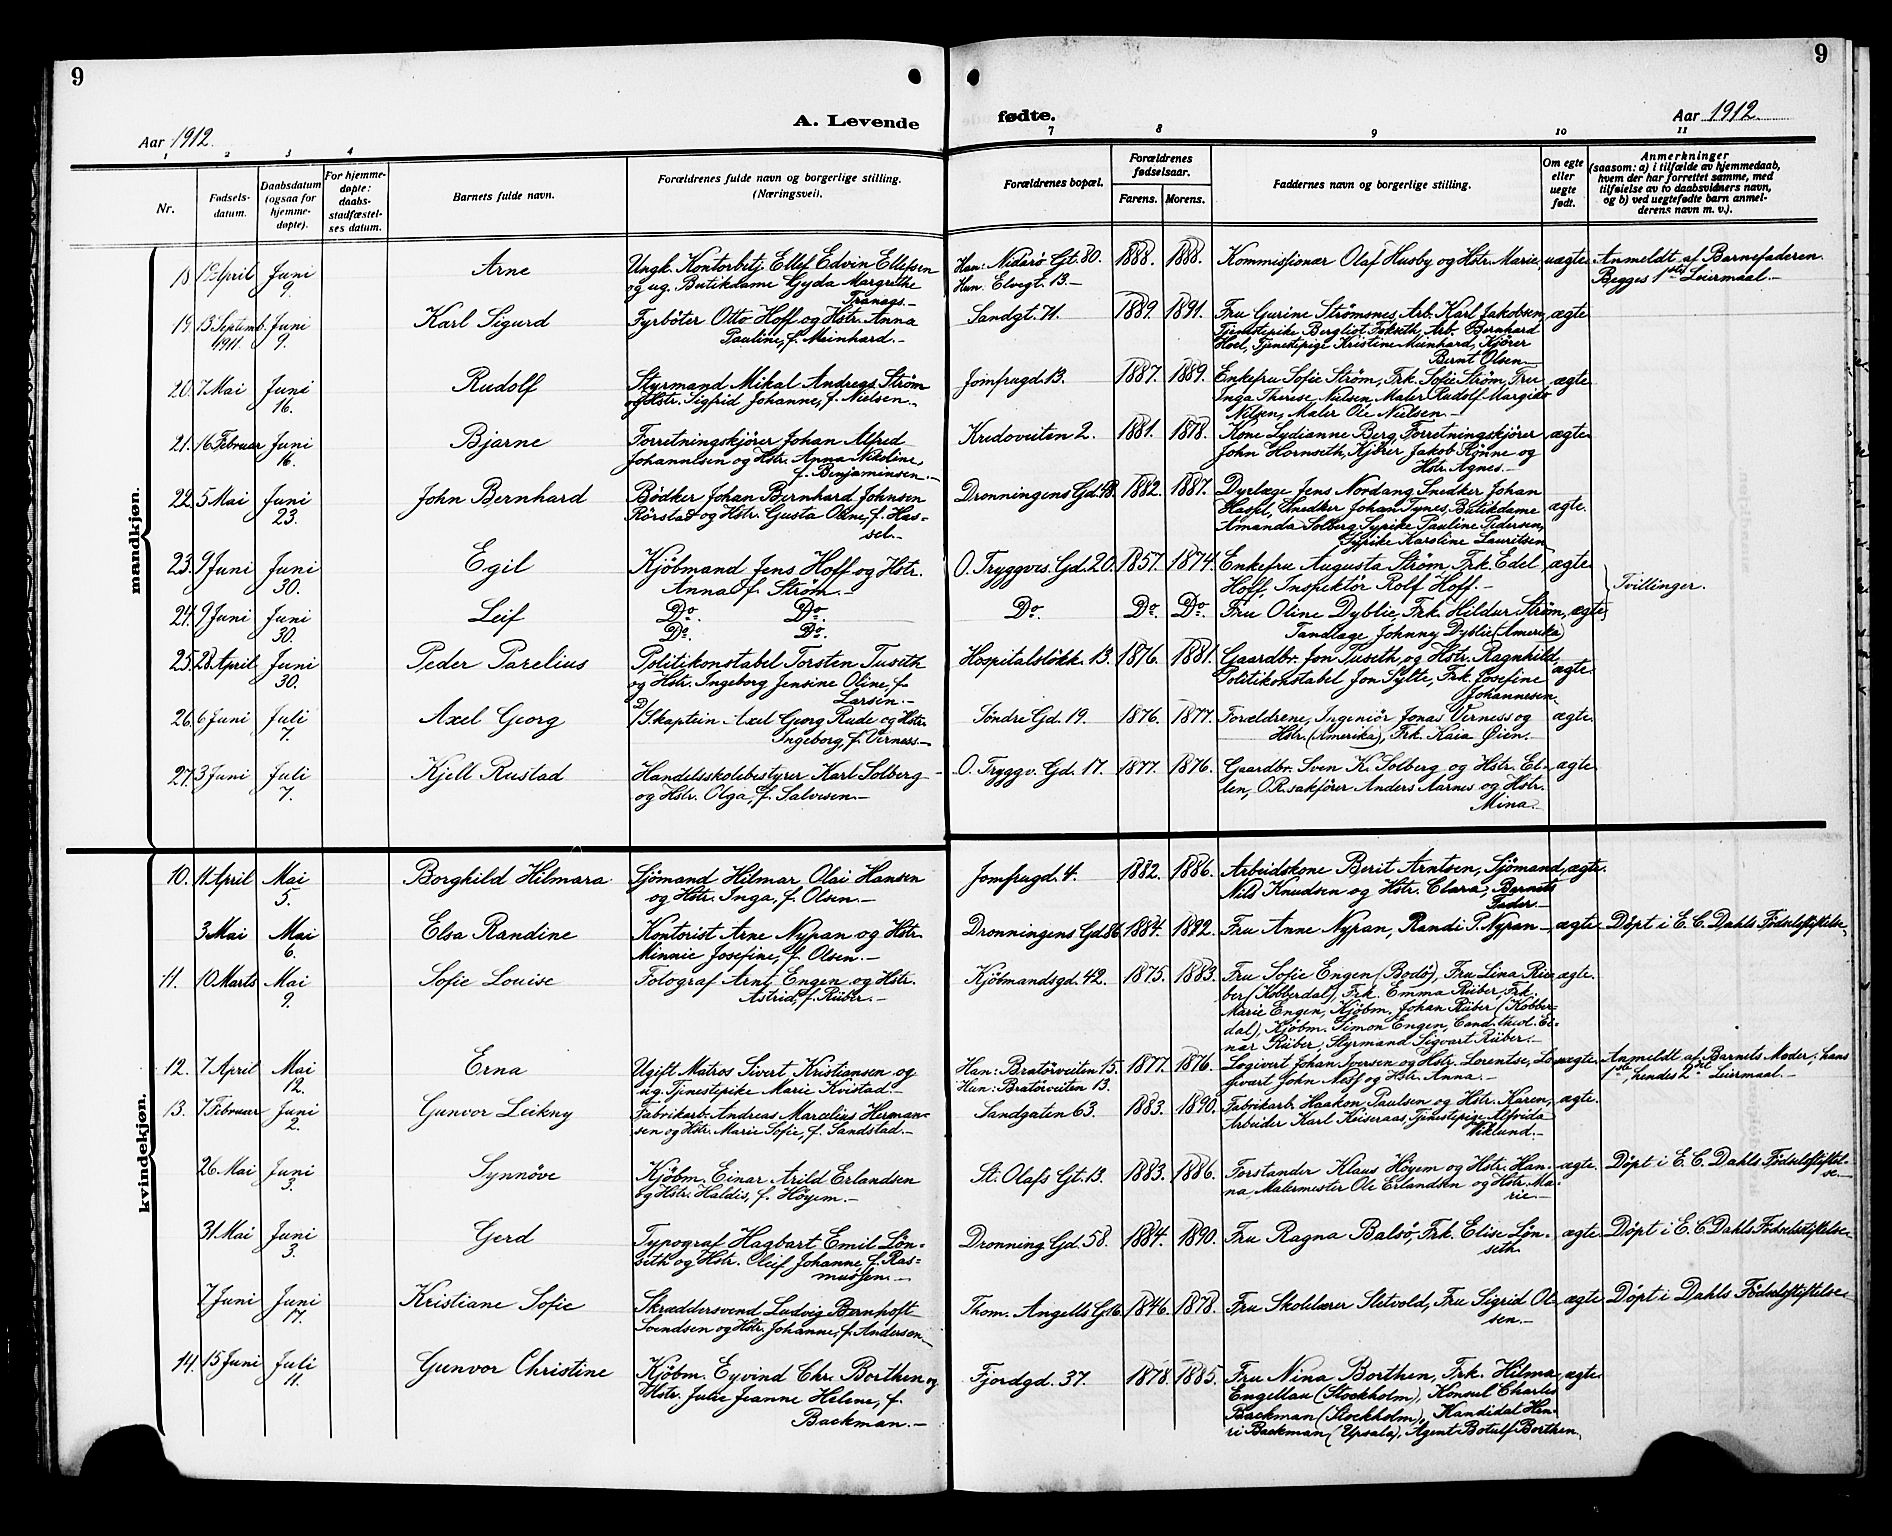 9
9
A. Levende
fødte.
Aar 1912.
Aar 1912.
1 2 3 4 7 8 9 10 11
Nr.
Fødsels-
datum.
Daabsdatum
(ogsaa for
hjemme-
døpte).
For hjemme-
døpte:
daabs-
stadfæstel-
ses datum.
Barnets fulde navn.
Forældrenes fulde navn og borgerlige stilling.
(Næringsvei).
Forældrenes bopæl.
Forældrenes
fødselsaar.
Farens. Morens.
Faddernes navn og borgerlige stilling.
Om egte
eller
uegte
født.
Anmerkninger
(saasom: a) i tilfælde av hjemmedaab,
hvem der har forrettet samme, med
tilføielse av to daabsvidners navn,
og b) ved uegtefødte barn anmel-
derens navn m. v.).
mandkjøn.
18. April Juni Arne Ungk. Kontorbetj. Ellef Edvin Ellefsen Han: Nidarö Gt. 80. 1888. 1888. Kommissionær Olaf Husby og Hstr. Marie. uægte. Anmeldt af Barnefaderen.
9. og ug. Butikdame Gyda Margrethe Hun: Elvegt. 13.- Begges 1ste Leiermaal.-
Tranaas.-
19. 13 Septemb. Juni Karl Sigurd Fyrböter Otto Hoff og Hstr. Anna Sandgt. 71. 1889. 1891. Fru Gurine Strömsnes, Arb. Karl Jakobsen, ægte
1911. 9. Pauline, f. Meinhard.- Tjenestepike Bergliot Fokseth, Arb. Bernhard
Hoel, Tjenestepige Kristine Meinhard, Kjører
Bernt Olsen.-
20. 7 Mai Juni Rudolf Styrmand Mikal Andreas Ström Jomfrugd. 13. 1887. 1889. Enkefru Sofie Ström, Frk. Sofie Ström, Fru ægte
16. og Hstr. Sigfrid Johanne, f. Nielsen.- Inga Therese Nielsen, Maler Rudolf Margido
Nilsen, Maler Ole Nielsen.-
21. 16 Februar Juni Bjarne Forretningskjörer Johan Alfred Kredoveiten 2. 1881. 1878. Kone Lydianne Berg, Forretningskjörer ægte
16. Johannesen og Hstr. Anna Nikoline, John Hornseth, Kjörer Jakob Rönne og
f. Benjaminsen.- Hstr. Agnes.-
22. 5 Mai Juni John Bernhard Bödker Johan Bernhard Johnsen Dronningens Gd. 48. 1882. 1887. Dyrlæge Jens Nordang, Snedker Johan ægte.
23. Rörstad og Hstr. Gusta Oline, f. Has- Hassel, Snedker Johan Tynes, Butikdame
sel.- Amanda Solberg, Sypike Pauline Pedersen,
Sypike Karoline Lauritsen
23. 9 Juni Juni Egil Kjöbmand Jens Hoff og Hstr. O. Tryggves. Gd. 20. 1857. 1874. Enkefru Augusta Ström, Frk. Edel ægte
30. Anna f. Ström.- Hoff, Inspektör Rolf Hoff.- Tvillinger.
24. 9 Juni Juni Leif Do. Do. Do. Do. Do. Fru Oline Dyblie, Frk. Hildur Ström, ægte
30. Do. Do. Tandlæge Johnny Dyblie (Amerika)
25. 28 April Juni Peder Parelius Politikonstabel Torsten Tuseth Hospitalslökk. 13. 1876. 1881. Gaardbr. Jon Tuseth og Hstr. Ragnhild, ægte.
30. og Hstr. Ingeborg Jensine Oline, f. Politikonstabel Jon Sylte, Frk. Josefine
Larsen.- Johannesen
26. 6 Juni Juli Axel Georg D/Skaptein Axel Georg Rude og Hstr. Söndre Gd. 19. 1876. 1877. Forældrene, Ingeniör Jonas Verness og ægte
7. Ingeborg, f. Verness.- Hstr. (Amerika), Frk. Kaia Øien.-
27. 3 Juni Juli Kjell Rustad Handelsskolebestyrer Karl Solberg O. Tryggv. Gd. 17. 1877. 1876. Gaardbr. Sven K. Solberg og Hstr. El- ægte
7. og Hstr. Olga, f. Salvesen.- len, O.R.sakförer Anders Aarnes og Hstr.
Mina.-
kvindekjøn.
10. 11 April Mai Borghild Hilmara Sjömand Hilmar Olai Hansen Jomfrugd. 4. 1882. 1886. Arbeidskone Berit Arntsen, Sjömand, ægte.
5. og Hstr. Inga, f. Olsen.- Nils Knudsen og Hstr. Clara, Barnets
Fader.-
3 Mai Mai Elsa Randine Kontorist Arne Nypan og Hstr. Dronningens Gd. 86. 1884. 1892. Fru Anne Nypan, Randi P. Nypan - ægte Döpt i E. C. Dahls Födselsstiftelse.
6. Minnie Josefine, f. Olsen.-
11. 10 Marts Mai Sofie Louise Fotograf Arnt Engen og Hstr. Kjöbmandsgd. 42. 1875. 1883. Fru Sofie Engen (Bodö), Fru Lina Rü- ægte.
9. Astrid, f. Rüber.- ber (Kobberdal), Frk. Emma Rüber, Frk.
Marie Engen, Kjöbm. Johan Rüber (Kobber-
dal), Kjöbm. Simon Engen, Cand. theol. Ei-
nar Rüber, Styrmand Sigvart Rüber.-
12. 7 April Mai Erna Ugift Matros Sivert Kristiansen og Han: Bratörveiten 15. 1877. 1876. Logivert Johan Iversen og Hstr. Lorentse, Lo- uægte. Anmeldt af Barnets Moder; hans
12. ug. Tjenestepike Marie Kvistad.- Hun: Bratörveiten 13. givert John Moe og Hstr. Anna.- 1ste, hendes 2det Leiermaal.-
13. 7 Februar Juni Gunvor Leikny Fabrikarb. Andreas Marcelius Herman- Sandgaten 63. 1883. 1890. Fabrikarb. Haakon Paulsen og Hstr. Karen, ægte.
2. sen og Hstr. Marie Sofie, f. Sandstad.- Arbeider Karl Keiseraas, Tjenestepige Alfrida
Wiklund.-
26 Mai Juni Synnöve Kjöbm. Einar Arild Erlandsen St. Olafs Gt. 13. 1883. 1886. Forstander Klaus Höyem og Hstr. Han- ægte Döpt i E. C. Dahls Födselsstiftel-
3. og Hstr. Haldis, f. Höyem.- na, Malermester Ole Erlandsen og Hstr. Ma- se.-
rie.-
31 Mai Juni Gerd Typograf Hagbart Emil Lön- Dronning. Gd. 58. 1884. 1890. Fru Ragna Balsö, Frk. Elise Lön- ægte. Döpt i E. C. Dahls Födselsstiftelse
3. seth og Hstr. Oleif Johanne, f. Ras- seth
mussen.-
7 Juni Juni Kristiane Sofie Skræddersvend Ludvig Bernhoft Thom. Angells G. 16. 1846. 1878. Fru Skolelærer Sletvold, Fru Sigrid Ol- ægte Döpt i Dahls Födselsstiftelse
17. Svendsen og Hstr. Johanne, f. Andersen.- sen.-
14. 15 Juni Juli Gunvor Christine Kjöbm. Eyvind Chr. Borthen og Fjordgd. 37. 1878. 1885. Fru Nina Borthen, Frk. Hilma ægte.
11. Hstr. Julie Jeanne Helene, f. Engellau (Stockholm), Konsul Charles
Backman.- Backman (Stockholm), Kandidat Hen-
ri Backman (Upsala), Agent Botulf Borthen.